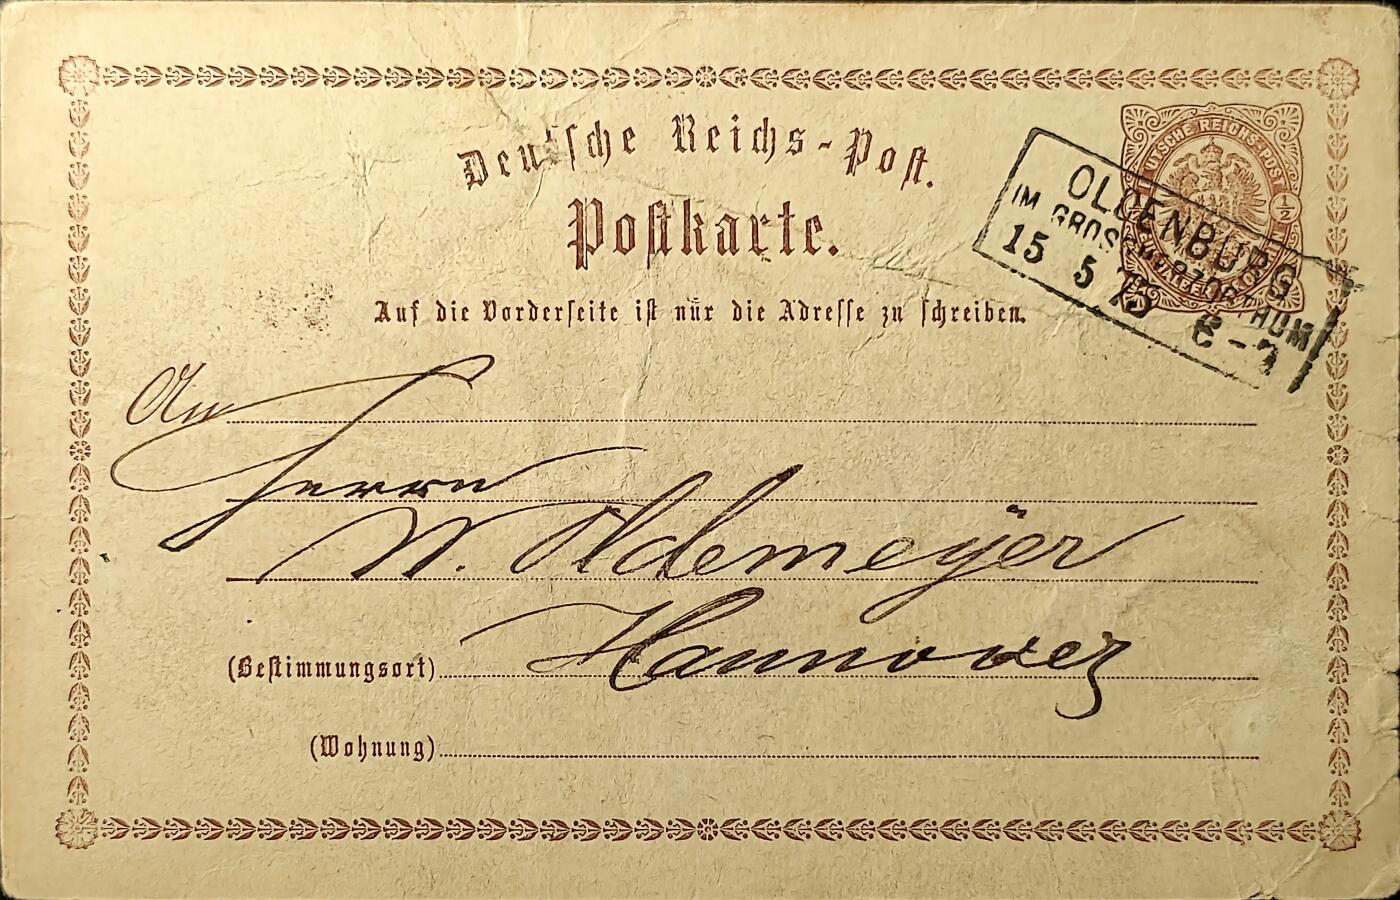 Deutsche Reichs-Post.
Postkarte.
Auf die Vorderseite ist nur die Adresse zu schreiben.
DEUTSCHE REICHS-POST
1/2
OLDENBURG
IM GROSSH. HUM
15 5 75 6-7
An
Herrn
W. Oldemeÿer
Hannover
(Bestimmungsort)
(Wohnung)